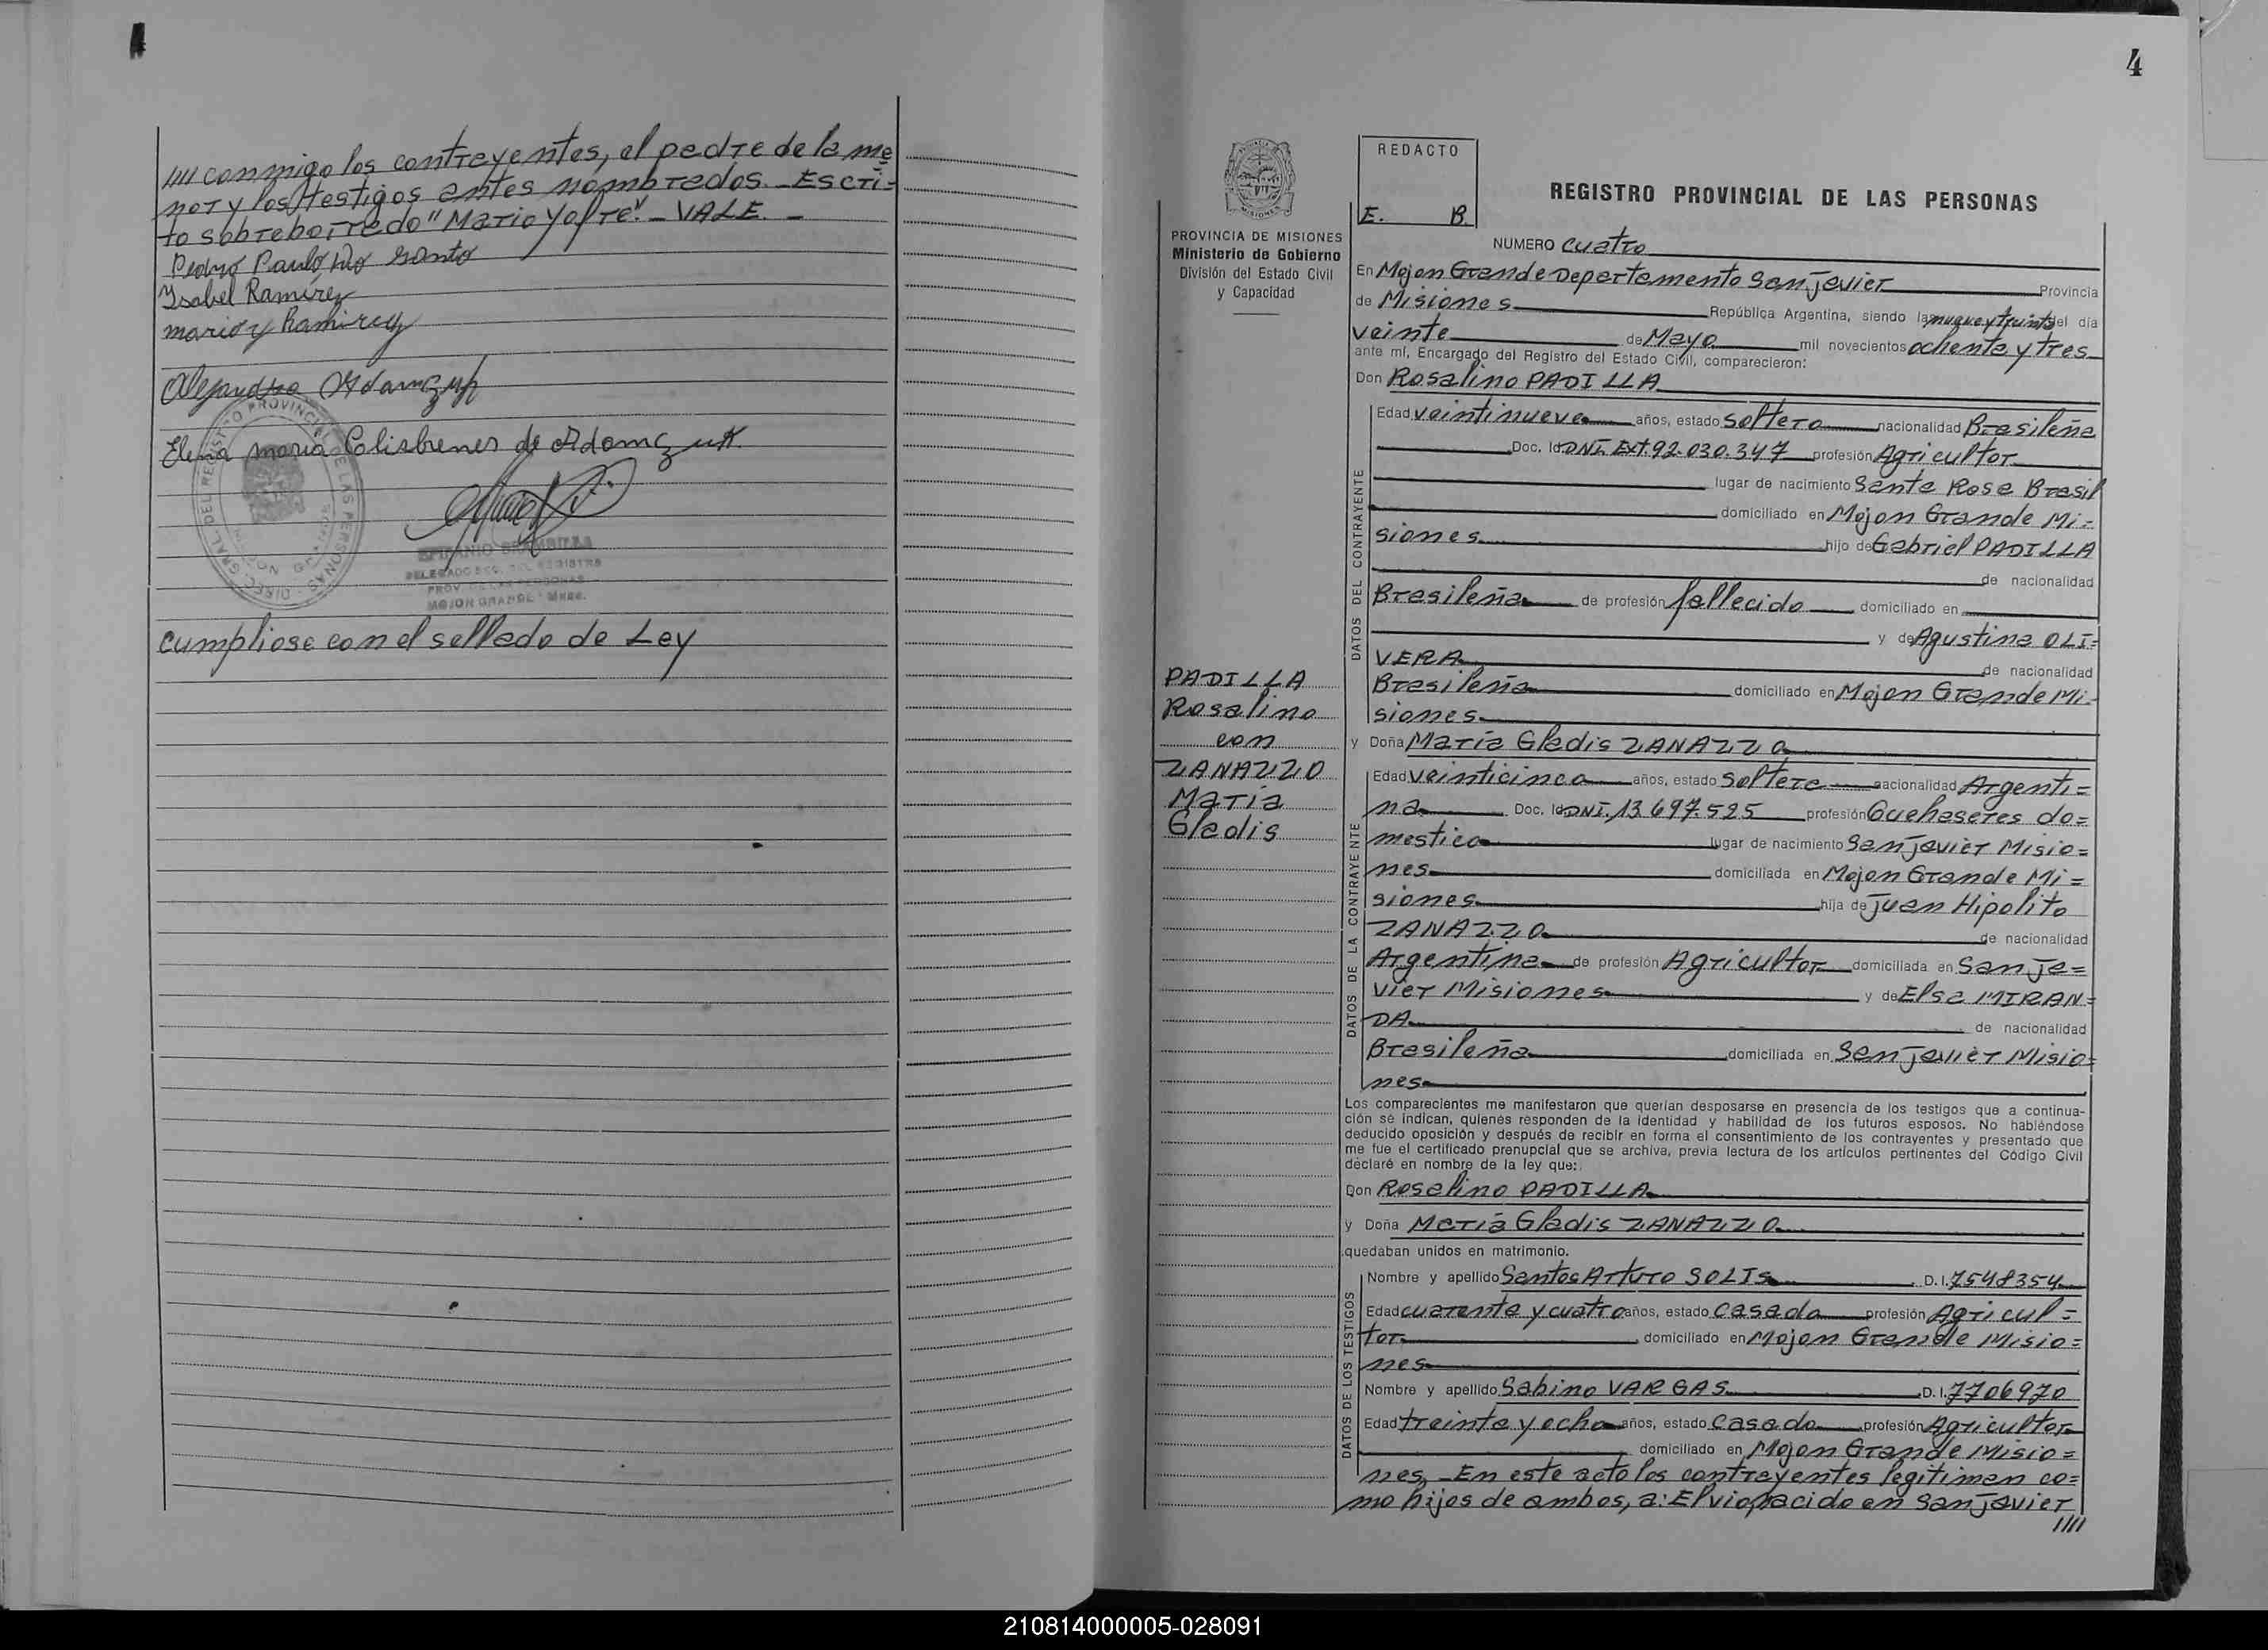 //// conmigo los contrayentes, el padre de la me
nor y los testigos antes nombrados._Escri=
to sobreborredo "Mario y ofre"._VALE._
Pedro Paulo Do Santo
Ysabel Ramirez
mario y Ramirez
Alejandro Adamczuk
Elena maria Colisbrenes de Adamczuk
EPIFANIO BRAMBILLA
DELEGADO SEC. DEL REGISTRO
PROV. DE LAS PERSONAS
MOJON GRANDE - Mnes.
cumpliose con el sellado de Ley
4
REDACTO
E. B.
REGISTRO PROVINCIAL DE LAS PERSONAS
PROVINCIA DE MISIONES
Ministerio de Gobierno
División del Estado Civil
y Capacidad
NUMERO cuatro
En Mojon Grande Departamento San Javier Provincia
de Misiones República Argentina, siendo las nueve y treinta del día
veinte de Mayo mil novecientos ochenta y tres
ante mí, Encargado del Registro del Estado Civil, comparecieron:
Don Rosalino PADILLA
DATOS DEL CONTRAYENTE
Edad veintinueve años, estado soltero nacionalidad Brasileña
Doc. Id. DNI. Ext. 92.030.347 profesión Agricultor
lugar de nacimiento Santa Rosa Brasil
domiciliado en Mojon Grande Mi=
siones hijo de Gabriel PADILLA
de nacionalidad
Brasileña de profesión fallecido domiciliado en
y de Agustina OLI=
VERA de nacionalidad
Brasileña domiciliado en Mojon Grande Mi=
siones
PADILLA
Rosalino
con
ZANAZZO
María
Gladis
y Doña María Gladis ZANAZZO
DATOS DE LA CONTRAYENTE
Edad veinticinco años, estado soltera nacionalidad Argenti=
na Doc. Id. DNI. 13.697.525 profesión Quehaseres do=
mestico lugar de nacimiento San Javier Misio=
nes domiciliada en Mojon Grande Mi=
siones hija de Juan Hipolito
ZANAZZO de nacionalidad
Argentina de profesión Agricultor domiciliada en San Ja=
vier Misiones y de Elsa MIRAN=
DA de nacionalidad
Brasileña domiciliada en San Javier Misio=
nes
Los comparecientes me manifestaron que querían desposarse en presencia de los testigos que a continua-
ción se indican, quienes responden de la identidad y habilidad de los futuros esposos. No habiéndose
deducido oposición y después de recibir en forma el consentimiento de los contrayentes y presentado que
me fue el certificado prenupcial que se archiva, previa lectura de los artículos pertinentes del Código Civil
declaré en nombre de la ley que:
Don Rosalino PADILLA
y Doña María Gladis ZANAZZO
quedaban unidos en matrimonio.
DATOS DE LOS TESTIGOS
Nombre y apellido Santos Arturo SOLIS D.I. 7548354
Edad cuarenta y cuatro años, estado casado profesión Agricul=
tor domiciliado en Mojon Grande Misio=
nes
Nombre y apellido Sabino VARGAS D.I. 7706970
Edad treinta y ocho años, estado casado profesión Agricultor
domiciliado en Mojon Grande Misio=
nes._En este acto los contrayentes legitiman co=
mo hijos de ambos, a: Elvio, nacido en San Javier
////
210814000005-028091